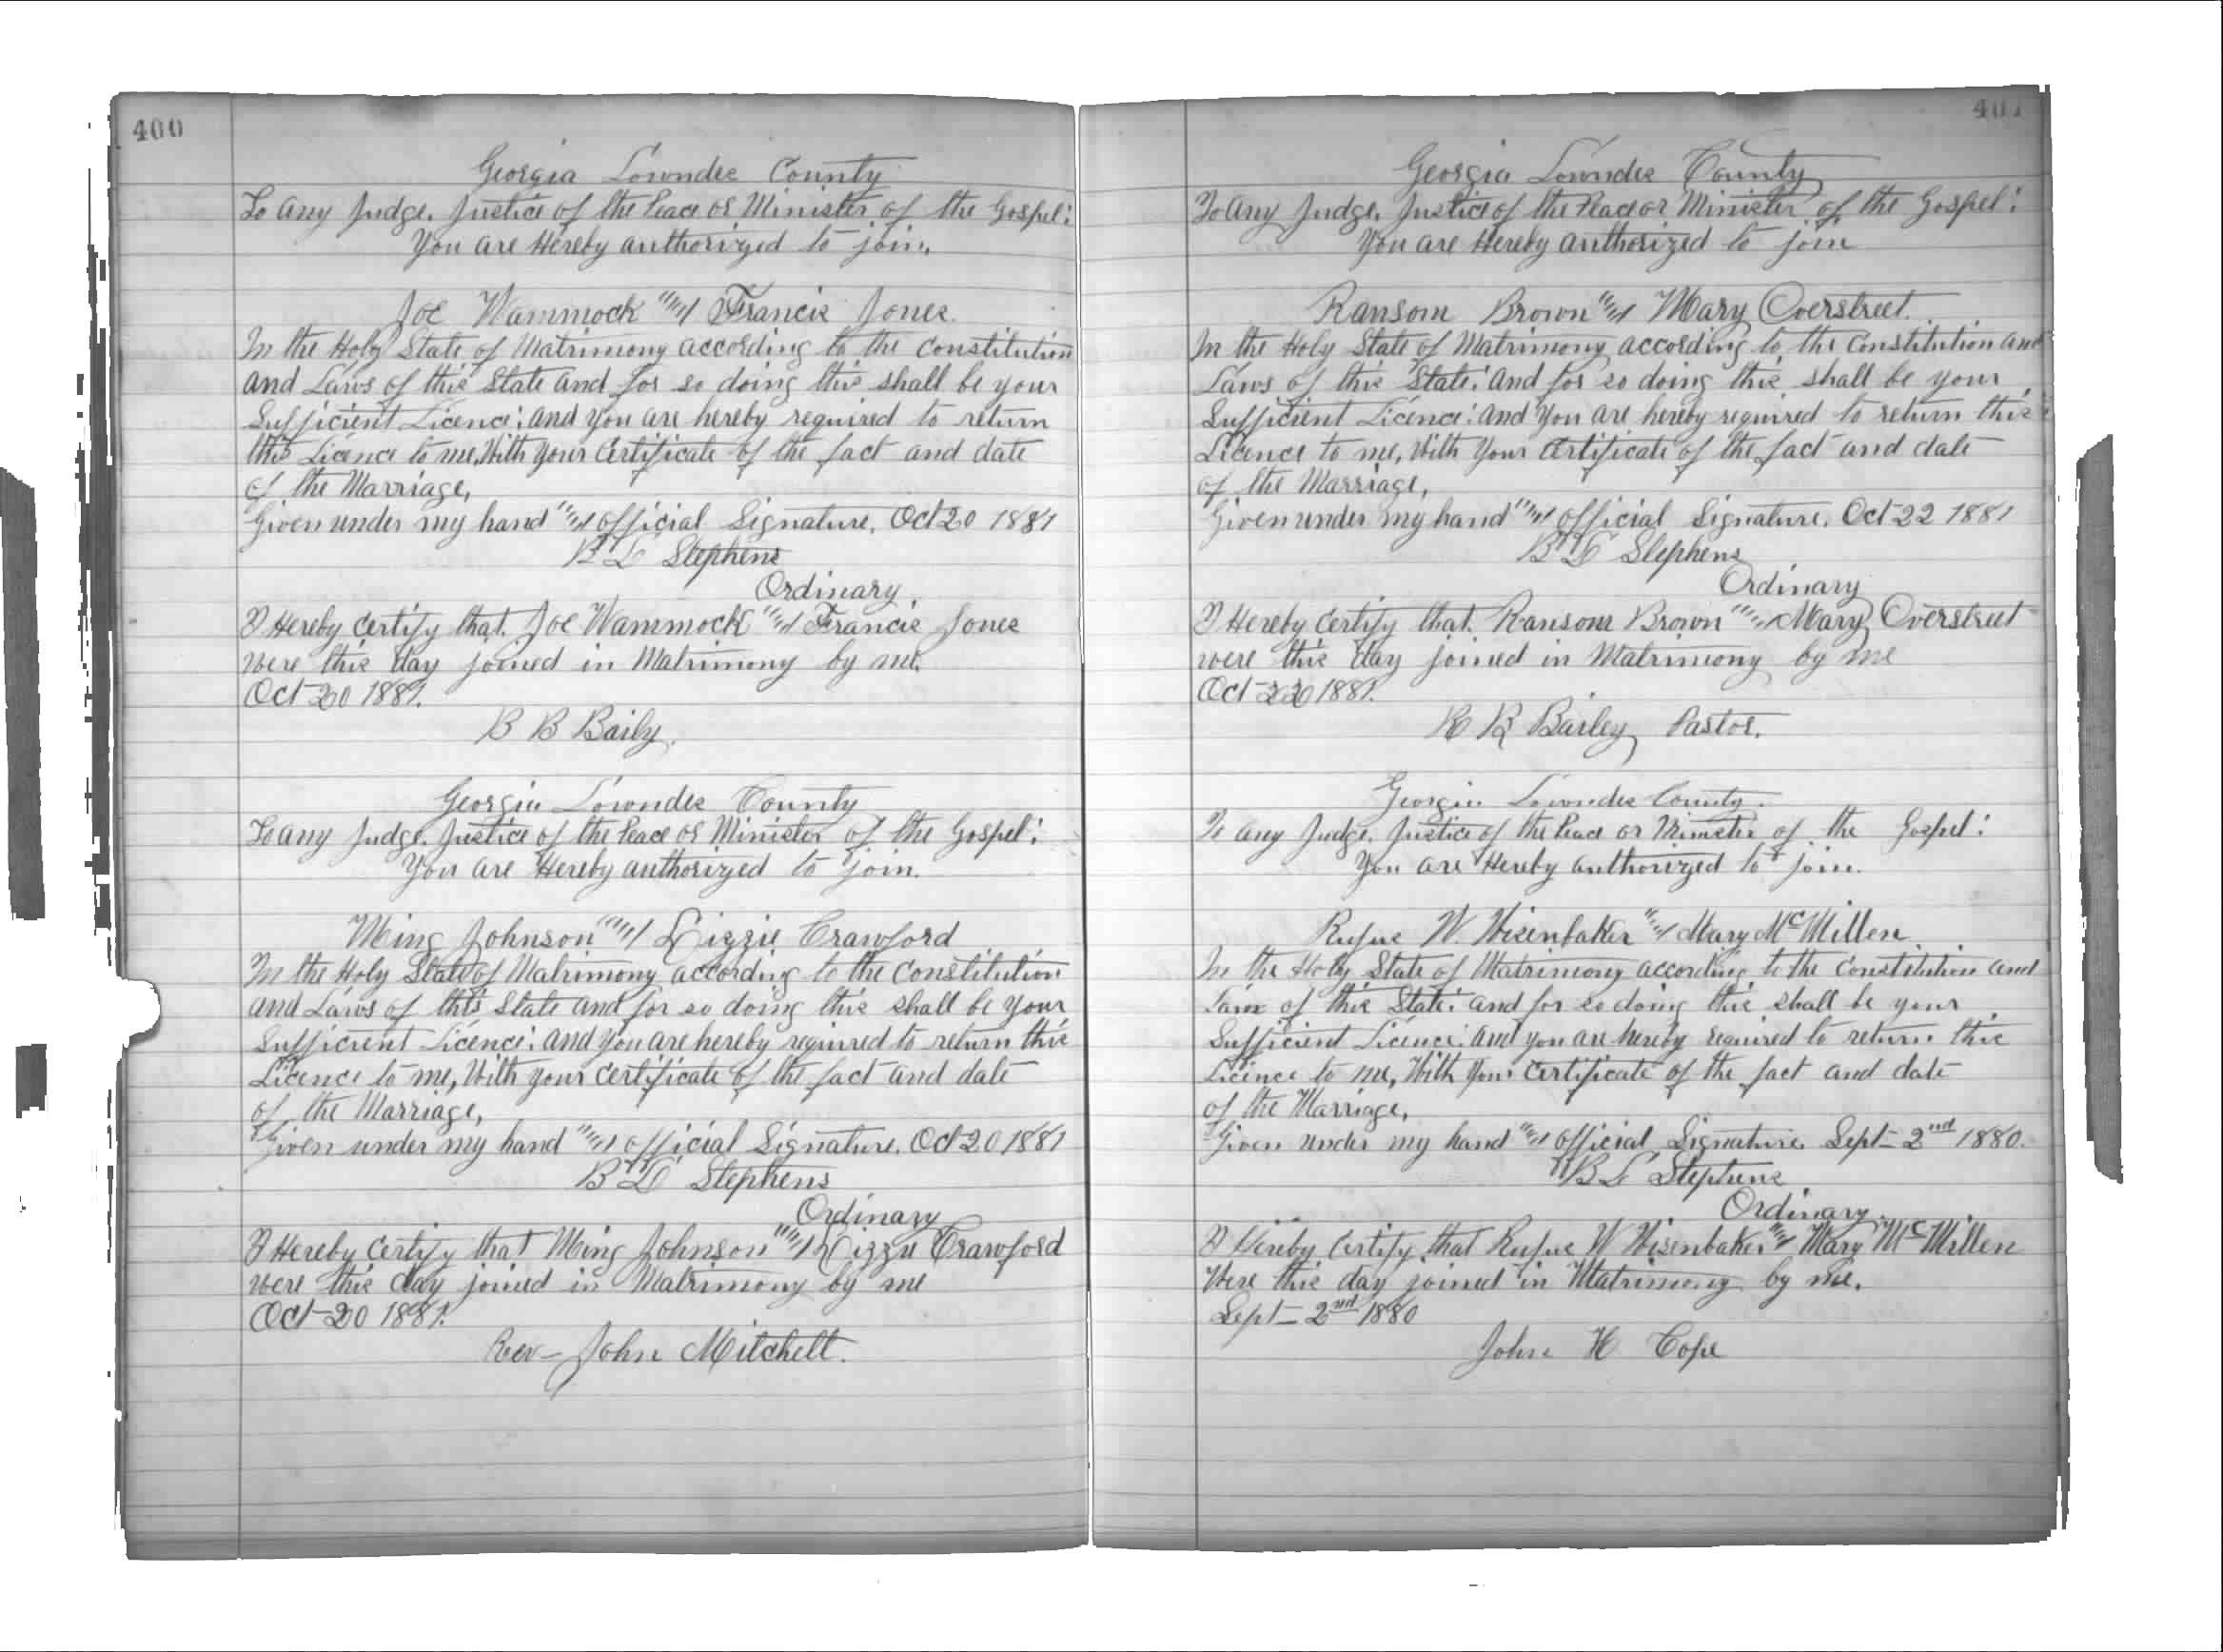 400
Georgia Lowndes County
To any Judge, Justice of the Peace or Minister of the Gospel:
You are Hereby authorized to join,
Joe Wammock and Francis Jones.
In the Holy State of Matrimony according to the Constitution
and Laws of this State and for so doing this shall be your
Sufficient Licence: and you are hereby required to return
this Licence to me, With your Certificate of the fact and date
of the Marriage,
Given under my hand and official Signature, Oct 20 1881
B L Stephens
Ordinary.
I Hereby Certify that Joe Wammock and Francis Jones
were this day joined in Matrimony by me.
Oct 20 1881.
B B Baily.
Georgia Lowndes County
To any Judge, Justice of the Peace or Minister of the Gospel:
You are Hereby authorized to join.
Ming Johnson and Lizzie Crawford
In the Holy State of Matrimony according to the Constitution
and Laws of this State and for so doing this shall be your
Sufficient Licence: and you are hereby required to return this
Licence to me, With your Certificate of the fact and date
of the Marriage,
Given under my hand and official Signature, Oct 20 1881
B L Stephens
Ordinary
I Hereby Certify that Ming Johnson and Lizzie Crawford
were this day joined in Matrimony by me
Oct 20 1881.
Rev John Mitchell.
401
Georgia Lowndes County
To any Judge, Justice of the Peace or Minister of the Gospel:
You are Hereby authorized to join
Ransom Brown and Mary Overstreet.
In the Holy State of Matrimony according to the Constitution and
Laws of this State: and for so doing this shall be your
Sufficient Licence: and You are hereby required to return this
Licence to me, With Your Certificate of the fact and date
of the Marriage,
Given under my hand and official Signature, Oct 22 1881
B L Stephens
Ordinary
I Hereby Certify that Ransom Brown and Mary Overstreet
were this day joined in Matrimony by me
Oct 1881.
R R Bailey Pastor.
Georgia Lowndes County.
To any Judge, Justice of the Peace or Minister of the Gospel:
You are Hereby authorized to join.
Rufus W. Wisenbaker and Mary McMillen
In the Holy State of Matrimony according to the Constitution and
Laws of this State: and for so doing this shall be your
Sufficient Licence: and you are hereby required to return this
Licence to me, With your Certificate of the fact and date
of the Marriage,
Given under my hand and official Signature, Sept 2nd 1880.
B L Stephens
Ordinary.
I Hereby Certify that Rufus W Wisenbaker and Mary McMillen
Were this day joined in Matrimony by me.
Sept 2nd 1880
John H Cope